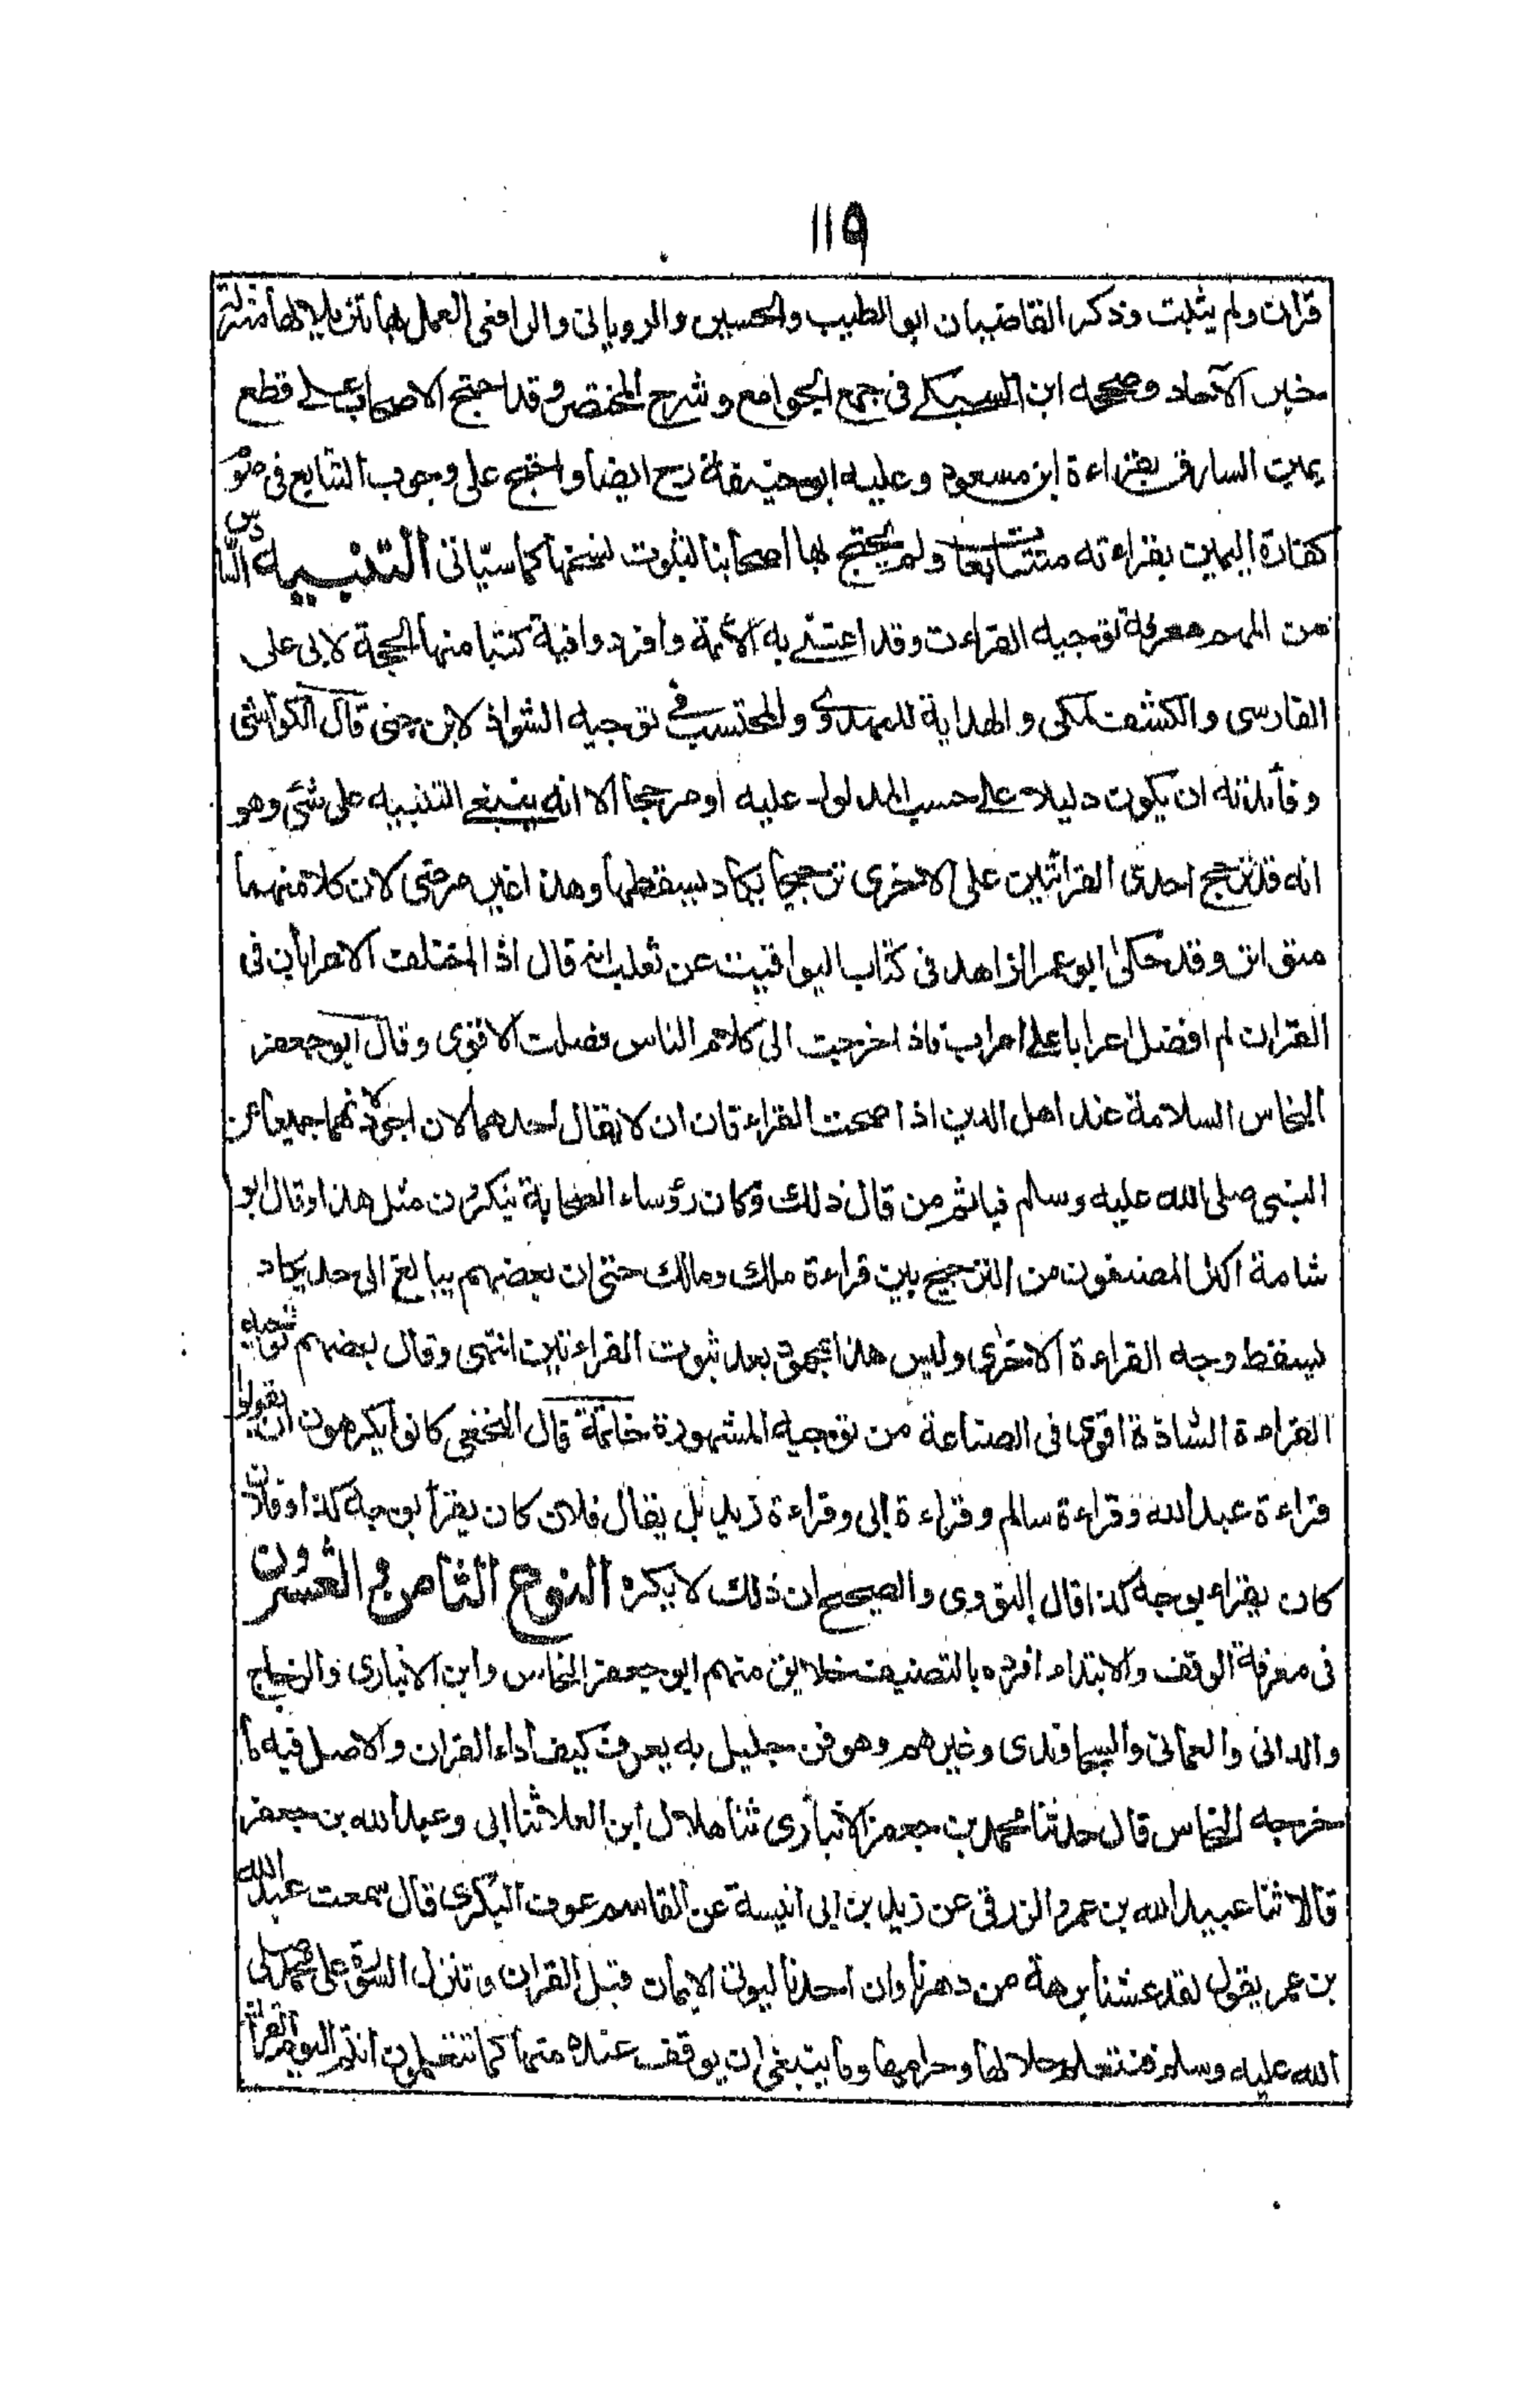 ١١٩
قرآن ولم يثبت وذكر القاضيان ابو الطيب والحسين والرويانى والرافعى العمل بها تنزيلا لها منزلة
خبر الآحاد وصححه ابن السبكے فى جمع الجوامع وشرح المختصر وقد احتج الاصحاب علے قطع
يمين السارق بقراءة ابن مسعود وعليه ابو حنيفة رح ايضا واحتج على وجوب التتابع فى صوم
كفارة اليمين بقراءته متتابعا ولم يحتج بها اصحابنا لثبوت نسخها كما سيأتى التنبيه السادس
من المهم معرفة توجيه القراءت وقد اعتنے به الأئمة وافردوا فيه كتبا منها الحجة لابى على
الفارسى والكشف لمكى والهداية للمهدوى والمحتسب فى توجيه الشواذ لابن جنى قال الكواشى
وفائدته ان يكون دليلا علے حسب المدلول عليه او مرجحا الا انه ينبغے التنبيه على شئ وهو
انه قد ترجح احدى القرائتين على الاخرى ترجيحا يكاد يسقطها وهذا غير مرضى لان كلا منهما
متواتر وقد حكى ابو عمر الزاهد فى كتاب اليواقيت عن ثعلب انه قال اذا اختلف الاعرابان فى
القران لم افضل اعرابا علے اعراب فاذا خرجت الى كلام الناس فضلت الاقوى وقال ابو جعفر
النحاس السلامة عند اهل الدين اذا صحت القراءتان ان لا يقال احدهما اجود لانهما جميعا عن
النبى صلى الله عليه وسلم فيأثم من قال ذلك وكان رؤساء الصحابة ينكرون مثل هذا وقال ابو
شامة اكثر المصنفون من الترجيح بين قراءة ملك ومالك حتى ان بعضهم يبالغ الى حد يكاد
يسقط وجه القراءة الاخرى وليس هذا بمحمود بعد ثبوت القراءتين انتهى وقال بعضهم توجيه
القراءة الشاذة اقوى فى الصناعة من توجيه المشهورة خاتمة قال النخعى كانوا يكرهون ان يقولوا
قراءة عبد الله وقراءة سالم وقراءة ابى وقراءة زيد بل يقال فلان كان يقرأ بوجه كذا وفلان
كان يقراء بوجه كذا قال النووى والصحيح ان ذلك لا يكره النوع الثامن والعشرون
فى معرفة الوقف والابتداء افرده بالتصنيف خلايق منهم ابو جعفر النحاس وابن الانبارى والزجاج
والدانى والعمانى والسجاوندى وغيرهم وهو فن جليل به يعرف كيف أداء القران والاصل فيه ما
خرجه النحاس قال حدثنا محمد بن جعفر الانبارى ثنا هلال ابن العلا ثنا ابى وعبد الله بن جعفر
قالا ثنا عبيد الله بن عمرو الزرقى عن زيد بن ابى انيسة عن القاسم عوف البكرى قال سمعت عبد الله
بن عمر يقول لقد عشنا برهة من دهرنا وان احدنا ليوتى الايمان قبل القران وتنزل السورة على محمد صلى
الله عليه وسلم فنتعلم حلالها وحرامها وما ينبغى ان يوقف عنده منها كما تتعلمون انتم اليوم القرآن